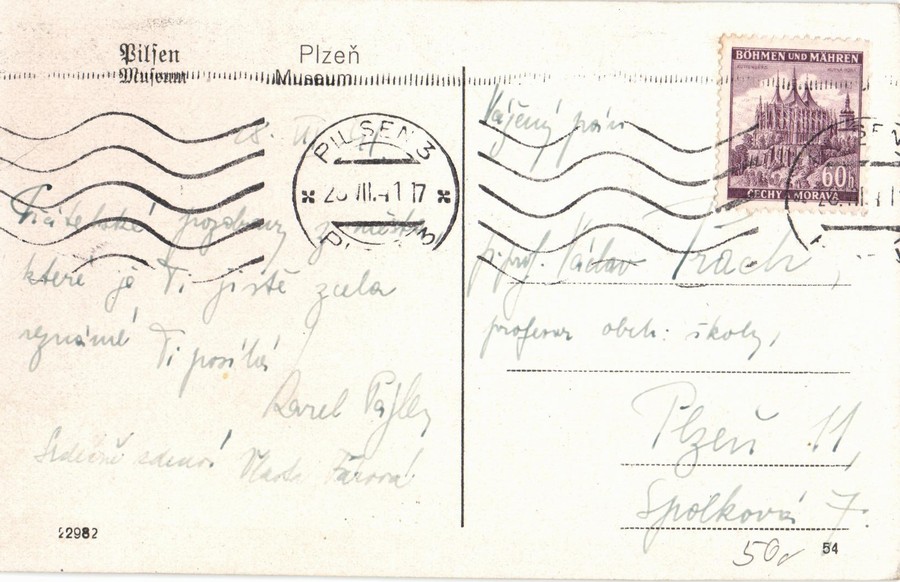 Pilsen
Museum
Plzeň
Museum
BÖHMEN UND MÄHREN
60h
ČECHY A MORAVA
PILSEN 3
28.VII.41 17
28. VII.
Přátelské pozdravy z města,
které je Ti jistě zcela
neznámé, Ti posílá
Karel
Srdečně zdraví Vlasta
Vážený pán
p. prof. Václav Trach,
profesor obch. školy,
Plzeň 11,
Spolková 7.
22982
50
54